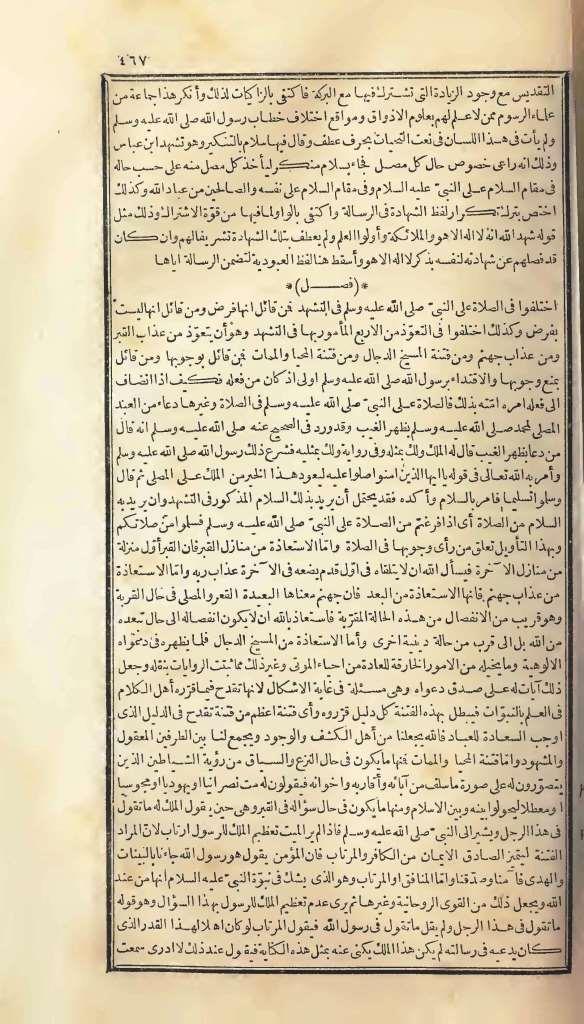 ٤٦٧
التقديس مع وجود الزيادة التي تشترك فيها مع البركة فاكتفى بالزاكيات لذلك وأنكر هذا جماعة من
علماء الرسوم ممن لا علم لهم بعلوم الاذواق ومواقع اختلاف خطاب رسول الله صلى الله عليه وسلم
ولم يأت في هذا اللسان في نعت التحيات بحرف عطف وقال فيها سلام بالتنكير وهو تشهد ابن عباس
وذلك انه راعى خصوص حال كل مصل فجاء بسلام منكر ليأخذ كل مصل منه على حسب حاله
في مقام السلام على النبي عليه السلام وفي مقام السلام على نفسه والصالحين من عباد الله وكذلك
اختص بترك تكرار لفظ الشهادة في الرسالة واكتفى بالواو لما فيها من قوة الاشتراك وذلك مثل
قوله شهد الله انه لا اله الا هو والملائكة وأولوا العلم ولم يعطف بتلك الشهادة تشريفا لهم وان كان
قد فصلهم عن شهادته لنفسه بذكر لا اله الا هو وأسقط هنا لفظ العبودية لتضمن الرسالة اياها
*(فصـــل)*
اختلفوا في الصلاة على النبي صلى الله عليه وسلم في التشهد فمن قائل انها فرض ومن قائل انها ليست
بفرض وكذلك اختلفوا في التعوذ من الاربع المأمور بها في التشهد وهو أن يتعوذ من عذاب القبر
ومن عذاب جهنم ومن فتنة المسيخ الدجال ومن فتنة المحيا والممات فمن قائل بوجوبها ومن قائل
بمنع وجوبها والاقتداء برسول الله صلى الله عليه وسلم اولى اذ كان من فعله فكيف اذا انضاف
الى فعله امره امته بذلك فالصلاة على النبي صلى الله عليه وسلم في الصلاة وغيرها دعاء من العبد
المصلى لمحمد صلى الله عليه وسلم بظهر الغيب وقد ورد في الصحيح عنه صلى الله عليه وسلم انه قال
من دعا بظهر الغيب قال له الملك ولك بمثله وفي رواية ولك بمثليه فشرع ذلك رسول الله صلى الله عليه وسلم
وأمر به الله تعالى في قوله يا ايها الذين امنوا صلوا عليه ليعود هذا الخير من الملك على المصلى ثم قال
وسلموا تسليما فامر بالسلام وأكده فقد يحتمل أن يريد بذلك السلام المذكور في التشهد وان يريد به
السلام من الصلاة أى اذا فرغتم من الصلاة على النبي صلى الله عليه وسلم فسلموا من صلاتكم
وبهذا التأويل تعلق من رأى وجوبها في الصلاة واما الاستعاذة من عذاب القبر فان القبر أول منزلة
من منازل الآخرة فيسأل الله ان لا يتلقاه في اول قدم يضعه في الآخرة عذاب ربه واما الاستعاذة
من عذاب جهنم فانها الاستعاذة من البعد فان جهنم معناها البعيدة القعر والمصلى في حال القربة
وهو قريب من الانفصال من هذه الحالة المقربة فاستعاذ بالله ان لا يكون انفصاله الى حال تبعده
من الله بل الى قرب من حالة دينية اخرى وأما الاستعاذة من المسيخ الدجال فلما يظهره في دعواه
الالوهية وما يخيله من الامور الخارقة للعادة من احياء الموتى وغير ذلك مما ثبتت الروايات بنقله وجعل
ذلك آيات له على صدق دعواه وهي مسئلة في غاية الاشكال لانها تقدح فيما قرره أهل الكلام
في العلم بالنبوات فيبطل بهذه الفتنة كل دليل قرروه وأى فتنة اعظم من فتنة تقدح في الدليل الذى
اوجب السعادة للعباد فالله يجعلنا من أهل الكشف والوجود ويجمع لنا بين الطرفين المعقول
والمشهود واما فتنة المحيا والممات فمنها ما يكون في حال النزع والسياق من رؤية الشياطين الذين
يتصورون له على صورة ما سلف من آبائه وأقاربه واخوانه فيقولون له مت نصرانيا او يهوديا او مجوسيا
او معطلا ليحولوا بينه وبين الاسلام ومنها ما يكون في حال سؤاله في القبر وهي حين يقول الملك له ما تقول
في هذا الرجل ويشير الى النبي صلى الله عليه وسلم فاذا لم ير الميت تعظيم الملك للرسول ارتاب لان المراد
الفتنة ليتميز الصادق الايمان من الكافر والمرتاب فان المؤمن يقول هو رسول الله جاءنا بالبينات
والهدى فآمنا وصدقنا واما المنافق او المرتاب وهو الذى يشك في نبوة النبي عليه السلام أنها من عند
الله ويجعل ذلك من القوى الروحانية وغيرها ثم يرى عدم تعظيم الملك للرسول بهذا السؤال وهو قوله
ما تقول في هذا الرجل ولم يقل ما تقول في رسول الله فيقول المرتاب لو كان اهلا لهذا القدر الذى
كان يدعيه في رسالته لم يكن هذا الملك يكنى عنه بمثل هذه الكناية فيقول عند ذلك لا ادرى سمعت